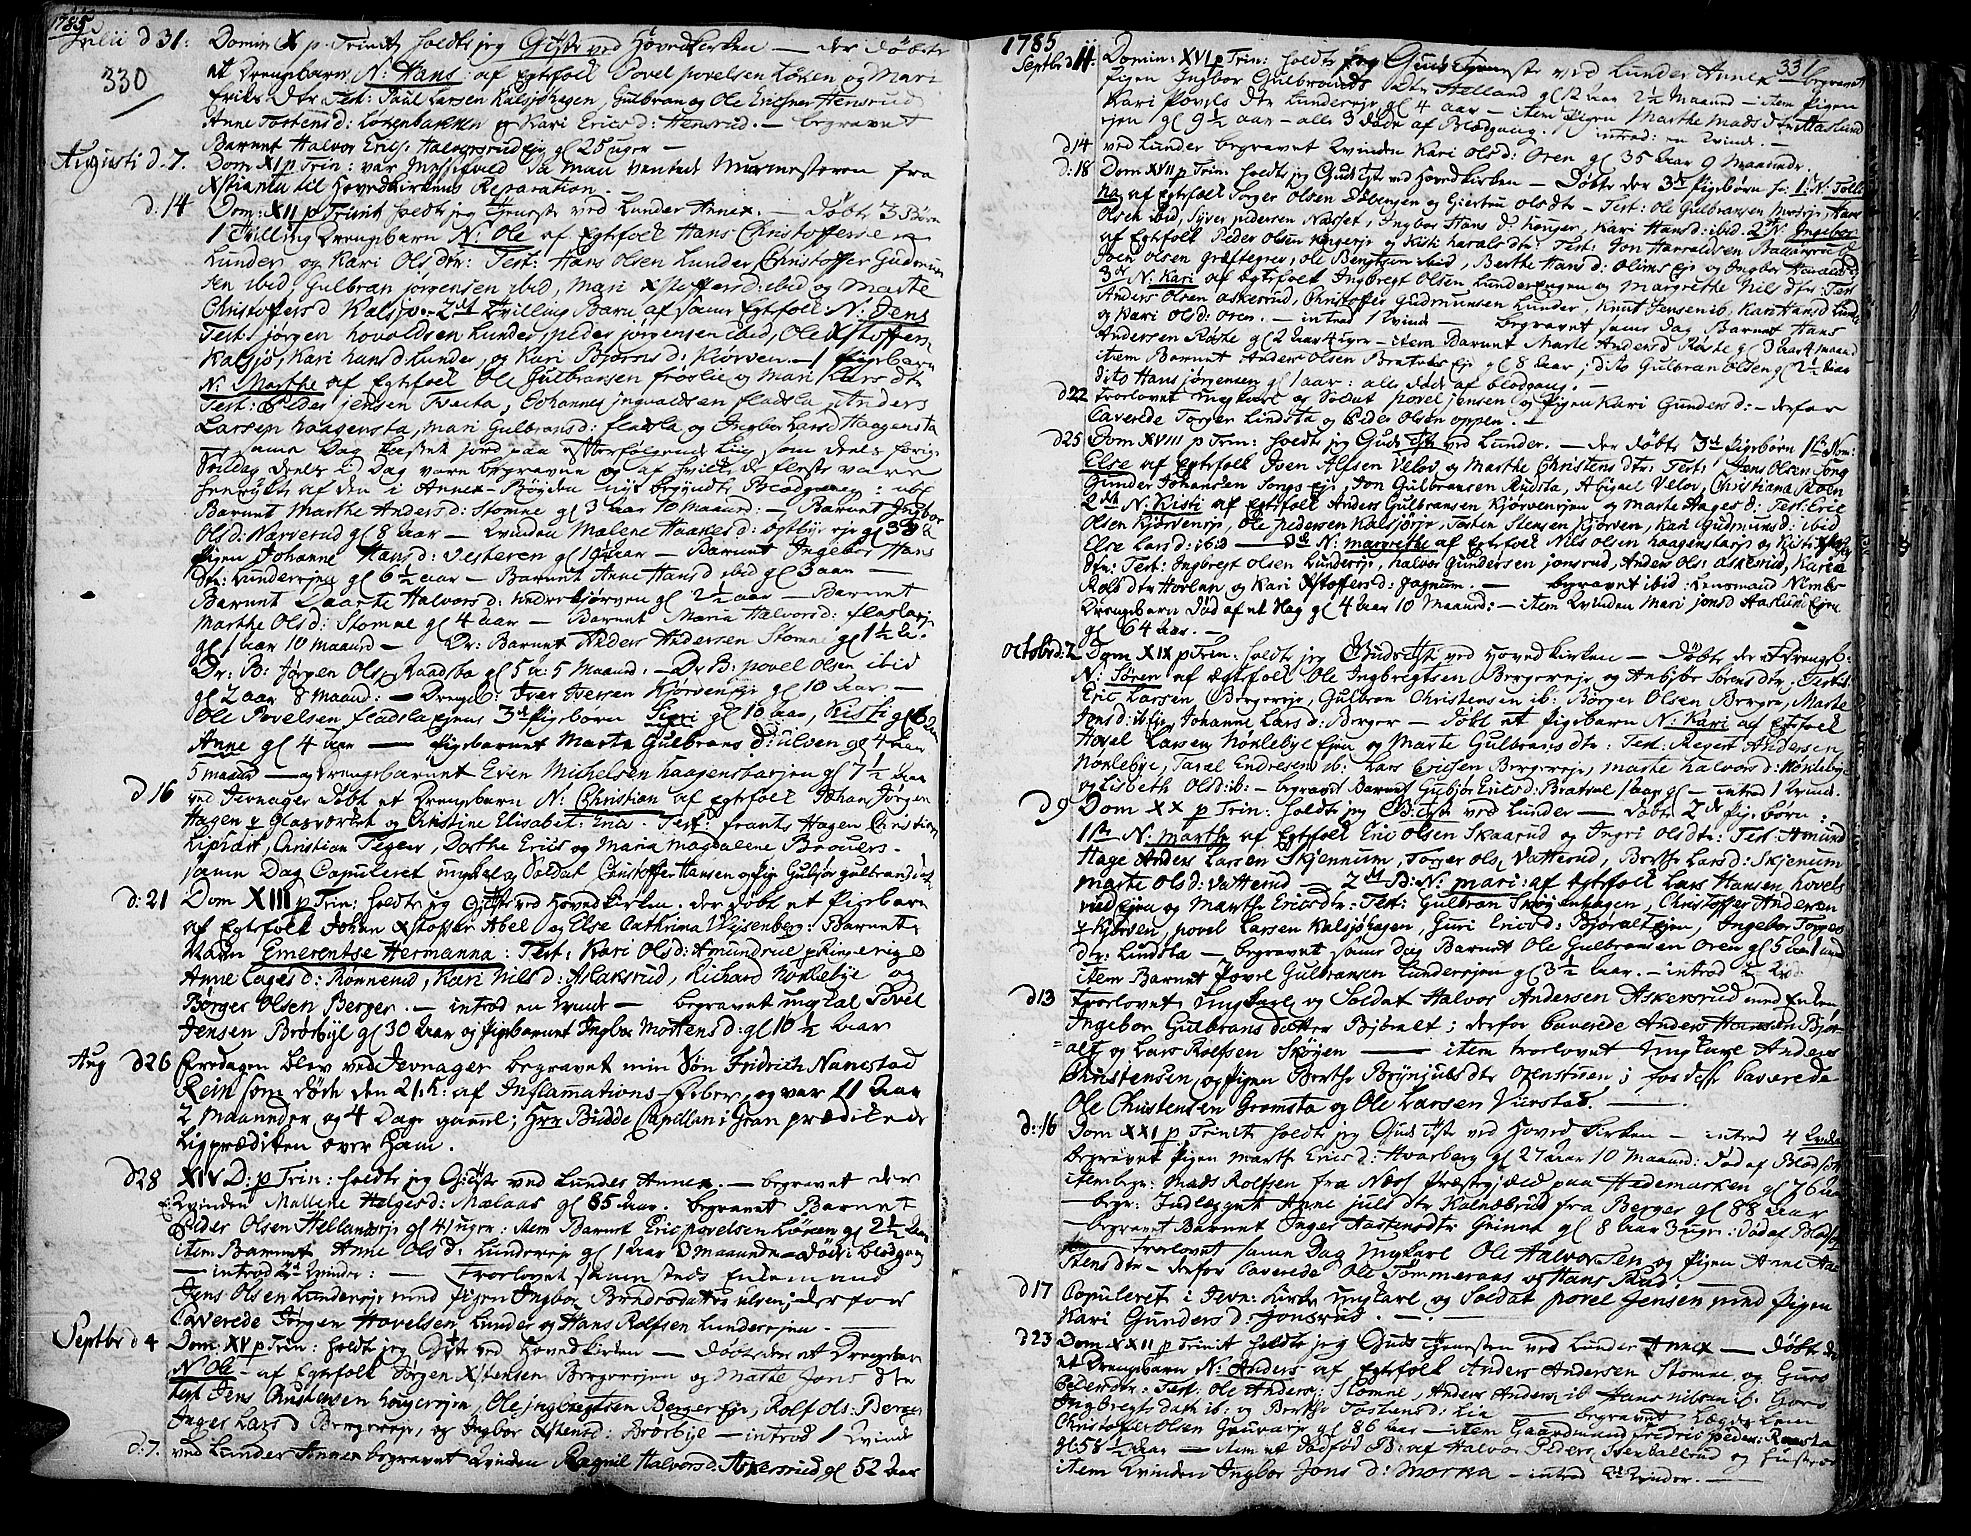 1785
Julii d 31: Domin X p. Trinit holdte jeg Gtiste ved Hovedkirken — der døbte
330
et Drengebarn N: Hans: af Egtefolk Povel povelsen Løken og Mari
Erics Dtr Test: Paul Larsen Kalsjøhagen, Gulbran og Ole Ericsner Hensrud
Anne Tostensd: Løkenbakken og Kari Ericsd: Hensrud. — begravet
Barnet Halvor Erics: Halvorsrudeje gl 25 uger —
Augusti d. 7. Dom XI p Trin: var Messefald da man ventede Murmesteren fra
Xstiania til Hovedkirkens Reparation. —
d. 14 Dom: XII p Trinit holdt jeg Tjeneste ved Lunder Annex. — Døbt 3 Børn
1 Tvilling Drengebarn N: Ole af Egtefolk Hans Christoffersen
Lunder og Kari Olsdtr: Test: Hans Olsen Lunder, Christoffer Gudmun
sen ibid, Gulbran jørgensen ibid, Mari Xstoffersd: ibid og Marte
Christoffersd Kalsjø. — 2d Tvilling Barn af samme Egtefolk N: Jens
Test: jørgen hovaldsen Lunder, peder jørgensen ibid, Ole Xstoffersen
Kalsjø, Kari hansd Lunder, og Kari Bjørnsd: Kiørven. — 1 Pigebarn
N: Marthe af Egtefolk Ole Gulbransen frøslie og Mari Lars dtr
Test: Peder jensen Tveta, Johannes jngvaldsen fladsla, Anders
Larsen haagensta, Mari Gulbransd: fladsla og Ingebor Larsd Haagensta
— samme Dag kastet jord paa efterfølgende Liig, som deels forige
Søndag deels i Dag vare begravne og af hvilke de fleste vare
henrykt af den i Annex-Bøyden nyt begyndte Blodgang:
Barnet Marthe Andersd: Stomne gl 3 aar 10 Maaned: — Barnet Ingebor
Olsd: Narverud gl 8 aar — Qvinden Malene Haakensd: østbyeje gl 33
Pigen Johanne Hansd: Vesteren gl 19 aar — Barnet Ingebor Hans
Dtr: Lunderejen gl 6½ aar — Barnet Anne Hansd ibid gl 3 aar —
Barnet Marte Halvorsd: nederkjørven gl 2½ aar — Barnet
Marthe Olsd: Stomne gl 4 aar — Barnet Maria Halvorsd: fladslaeje
gl 1 aar 10 Maaned — Dr: Barnet Anders Andersen Stomne gl 1½ a.
Dr: B: Jørgen Ols Raadsta gl 5 a: 5 Maaned. — Dr B: povel Olsen ibid
gl 2 aar 8 Maaned: — Drengeb: Iver Iversen Kjørvenseje gl 10 Aar —
Ole Povelsen fladsla ejens 3de Pigebørn Sigri gl 10 aar, Kisti gl 6
Anne gl 4 aar — Pigebarnet Marta Gulbrans d: ulven gl 4 aar
5 maaned — og Drengebarnet Even Michelsen haagenstaejen gl 7½ aar
d 16 ved Jevnager Døbt et Drengebarn N: Christian af Egtefolk Johan Jørgen
Hagen v Glasværket og Christine Elisabet: Erics. Test: frants Hagen Christian
Lipfart, Christian Teger, Dorthe Erics og Maria Magdalene Brouers.
samme Dag Copuleret ungkarl og Soldat Christoffer Hansen og Pige Gubjør gulbransd
d: 21 Dom XIII p Trin: holdt jeg Gtiste ved Hovedkirken. der døbt et Pigebarn
af Egtefolk Johan Xstoffer Abel og Else Cathrina Weisenberg: Barnets
Navn Emerentse Hermanna: Test: Kari Olsd: Amundrud p Ringerige
Anne Lagesd: Rønnerud, Kari Nilsd: Alaksrud, Richard Nøklebye og
Børger Olsen Berger. — introd en Qvind — begravet ungkarl Povel
Jensen Brørbye gl 30 Aar og Pigebarnet Ingbor Mortensd: gl 10½ Aar
Aug d 26 Fredagen blev ved Jevnager begravet min Søn Fridrich Nannestad
Rein som døde den 21de: af Inflamations-Feber, og var 11 Aar
2 Maaneder og 4 Dage gammel; Hrr Budde Capellan i Gran prædikede
Ligprædiken over ham.
d 28 XIV D: p Trin: holdte jeg Gtiste ved Lunder Annex. — begravet der
Qvinden Mallene Helgesd: Mælaas gl 85 Aar. begravet Barnet
Peder Olsen Hellandseje gl 4 uger: item Barnet Eric povelsen Løken gl 2½ Aar
item Barnet Anne Olsd: Lundereje gl 1 Aar 8 maaneder — Død i blodgang
— introd 2d Qvinder: — Trolovet samme steds Enkemand
Jens Olsen Lundereje med Pigen Ingebor Brædesdatter ulsen; derfor
Caverede Jørgen Hovelsen Lunder og Hans Rolfsen Lunderejen. —
Septbr d 4 Dom: XV p Trin: holdt jeg Gtiste ved Hovedkirken — døbt der et Drengebarn
N: Ole — af Egtefolk Jørgen Xstensen Bergerejen og Marte Jons dtr
test Jens Christensen hougerejen, Ole jngbregtsen Berger eje, Rolf ols: Berger
Inger Larsd Bergereje, og Ingebor Xstensd: Brørbye — introd 1 Qvind
d. 7. ved Lunder Annex begravet Qvinden Ragnil Halvorsd: Askersrud gl 52 aar
1785
331
Septbr d 11: Domin: XVI p Trin: holdt jeg Guds Tjeneste ved Lunder Annex — begravet
Pigen Ingebor Gulbrands datter Helland gl 12 aar 2½ Maaned — item Pigen
Kari Povels dtr Lundereje gl 4 aar — item Pigen Marthe Mads dtr Haslund
ejen gl 9½ aar — alle 3 døde af Blodgang. introd: en Qvinde.
d 14 ved Lunder begravet Qvinden Kari Olsd: Oren gl 35 aar 9 Maaneder
d: 18 Dom XVII p Trin: holdt jeg Guds Tste ved Hovedkirken — Døbte der 3de Pigebørn
af Egtefolk Torger Olsen Dølbergen og Giertru Olsdtr — Test: Ole Gulbransen Mosseje, Hans
Olsen ibid, Syver pedersen Næsset, Ingebor Hans d: Houger, Kari Hansd: ibid. 2 N: Ingebor
af Egtefolk Peder Olsen og Kisti haralsdtr: Test: Jon Haraldsen Ballangrud
Joen Olsen græftegrev, Ole Bengtsen ibid, Berthe Hansd: Olimseje og Ingebor Haralsd
3de N: Kari af Egtefolk Ingbregt Olsen Lunderengen og Margrethe Nilsdtr: Test
Anders Olsen askersrud, Christoffer Gudmunsen Lunder, Knut Jensen ib, Kari Hansd Lunder
og Kari Olsd: oren. — introd 1 Qvind — begravet samme Dag Barnet Hans
Andersen Roste gl 2 Aar 4 uger — item Barnet Marte Andersd Roste gl 3 aar 4 maaned
item Barnet Anders Olsen Bratvoldeje gl 8 aar, dito Gulbran Olsen gl 2½ aar
dito Hans jørgensen gl 1 aar: alle død af blodgang. —
d 22 trorlovet ungkarl og Soldat povel jensen og Pigen Kari Gundersd: — derfor
Caverede Torger Lindsta og Peder Olsen oppen. —
d 25 Dom XVIII p Trin: holdt jeg Guds Tste ved Lunder. — der døbt 3de Pigebørn 1ste Nom:
Else af Egtefolk Iven Alfsen Velov og Marthe Christens dtr: Test: Jens Olsen Jong
Gunder Johansen Jongseje, Jon Gulbransen Rudsta, Abigael Velov, Christiana Moen
2de N: Kisti af Egtefolk Anders Gulbransen Kjørvenejen og Marte Hages d: Test: Eric
Olsen Kjørveneje, Ole pedersen Kalsjøeje, Tosten Stensen Kjørven, Kari Gudmunsd: ibid
Else Larsd: ibid — 3de N: margrethe af Egtefolk Nils Olsen haagenstaeje og Kisti
dtr: Test: Ingbregt Olsen Lundereje, halvor Gundersen jonsrud, Anders Ols: askersrud, Karen
Rolfsdtr Horlen og Kari Xstoffersd: Jognum. — begravet ibid: Lensmand Nimbs
Drengebarn død af et Slag gl 4 aar 10 Maaned: — item Qvinden Mari jonsd Haslund Ejen
gl 64 Aar. —
Octobr d: 2 Dom XIX p Trin: holdt jeg Guds Tste ved Hovedkirken — Døbt der et Drengeb:
N: Søren af Egtefolk Ole Ingbregtsen Bergereje og Anbjør Sørensdtr, Test
Eric Larsen Bergereje, Gulbran Christensen ib: Børger Olsen Berger, Marte
Jonsd: ib: eje, Johanne Larsd: Berger — døbt et Pigebarn N: Kari af Egtefolk
Hovel Larsen Nøklebye Ejen og Marte Gulbrans dtr: Test: Regert Andersen
Nøklebye, Taral Endresen ib: Lars Ericsen Bergereje, Marte halvorsd: Nøklebye
og Lisbeth Olsd: ib: — begravet Barnet Gubjør Ericsd: Bratval 1 aar gl — introd 1 Qvind.
d 9 Dom XX p Trin: holdt jeg Gtiste ved Lunder — Døbt 2de Pigebørn:
1ste N: Marthe af Egtefolk Eric Olsen Skaarud og Ingri Olsdtr: Test: Amund
Hage Anders Larsen Skjennum, Torger ols, Vatterud, Berthe Larsd: Skjenum
Marte Olsd: Vatterud 2de P: N: Mari: af Egtefolk Lars Hansen hovels
rud Ejen og Marthe Ericsdtr: Test: Gulbran Skøyenhagen, Christoffer Andersen
Kjørven, povel Larsen Kalsjøhagen, Guri Ericsd: Bjøraltejen, Ingebor Torges
dtr: Lindsta — begravet samme dag Barnet Ole Gulbransen Oren gl 5 aar 1 uge
item Barnet Povel Gulbransen Lunderejen gl 3½ aar. — introd
d 13 Trorlovet ungkarl og Soldat Halvor Andersen Askersrud med Enken
Ingebor Gulbrans datter Bjøralt; derfor Caverede Anders Hansen Bjør-
alt og Lars Rolfsen Skøyen — item trorlovet ungkarl Anders
Christensen og Pigen Berthe Brynjuls dtr Orenstuen; for disse Caverede
Ole Christensen Gromsta og Ole Larsen Vurstad. —
d: 16 Dom XXI p Trinit: holdt jeg Guds Tste ved Hovedkirken — introd 4 Qvinder
begravet Pigen Marthe Erics d: Hvasberg gl 27 aar 10 Maaned: død af Blodsot
item begr: Mads Rolfsen fra Næss Præstegjeld paa Hedemarken gl 76 aar
— begr: Indlægget Anne juls dtr Kalnæbrud fra Berger gl 88 aar
— begravet Barnet Inger Aastensdtr: Grinna gl 8 aar 3 uger: død af Blodsot
— trorlovet samme Dag ungkarl Ole Halvorsen og Pigen Anne Aa
stensdtr — derfor Caverede Ole Tømmeraas og Hans Rud.
d 17 Copuleret i Jevn: Kirke ungkarl og Soldat povel Jensen med Pigen
Kari Gunders d: Jonsrud. — . —
d 23 Dom XXII p Trinit holdt jeg Guds Tjenesten ved Lunder Annex — døbt der
et Drengebarn N: Anders af Egtefolk Anders Andersen Stomne, og Guro
Pedersdtr: Test: Ole Anders: Stomne, Anders Anders: ib Hans Nilsen ib. Goro
Ingbregtsdatt ib: og Berthe Tostensd: Lia — begravet Lægdslem
Christoffer Olsen Gouvareje gl 86 aar — item Gaardmand Fredric Peders: Raasta
gl 58½ aar — item et Dødfød B: af Halvor Peders: Stenballerud og hustroe
item Qvinden Ingebor Jons d: Morka — introd 2de Qvinder. —